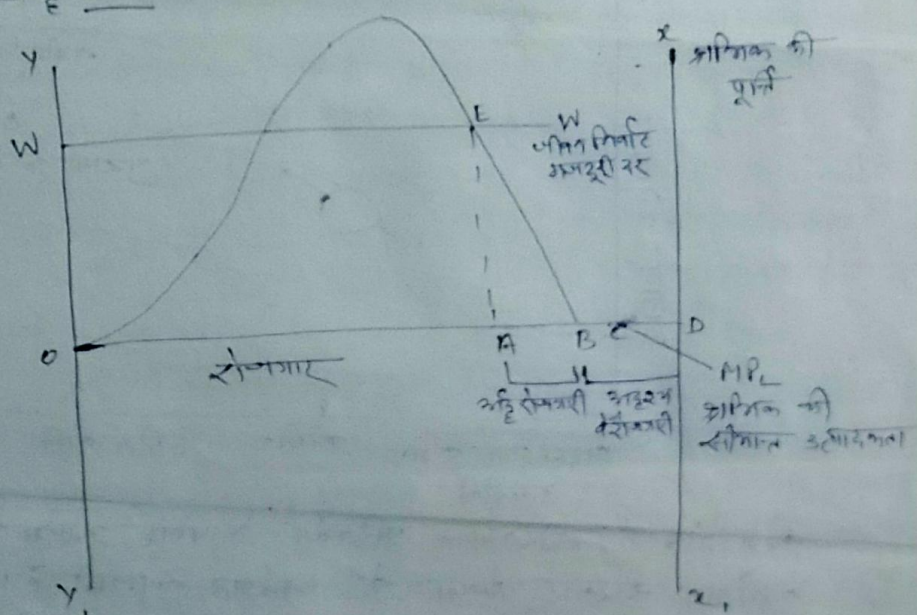 E
Y
x
श्रमिक की
पूर्ति
W
E
W
जीवन निर्वाह
मजदूरी दर
O
A
B
C
D
रोजगार
MPL
अर्द्ध रोजगारी
अदृश्य
बेरोजगारी
श्रमिक की
सीमान्त उत्पादकता
Y1
x1